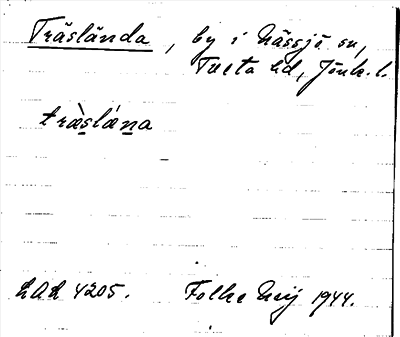 Träslända, by i Nässjö sn,
Tveta hd, Jönk. l.
trä̀slá̈na
LAL 4205. Folke Meij 1944.